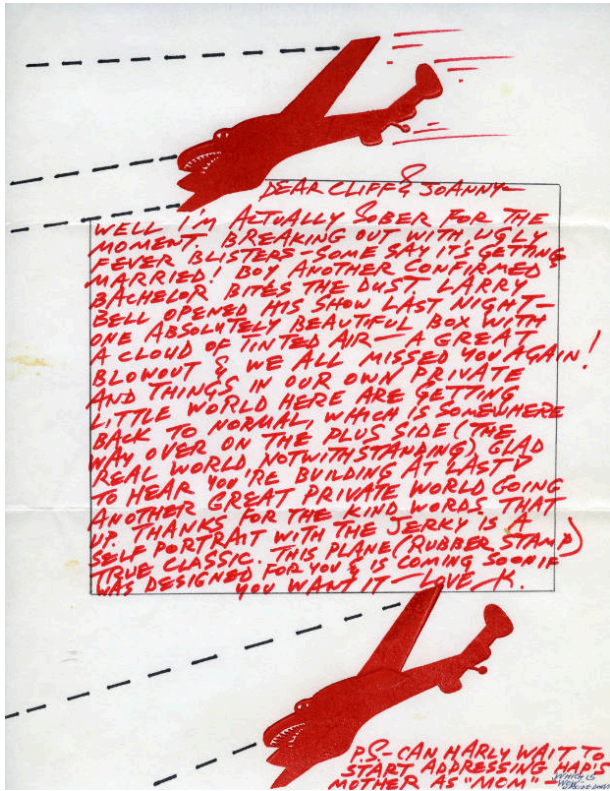 DEAR CLIFF & JOANNY—
WELL I'M ACTUALLY SOBER FOR THE
MOMENT. BREAKING OUT WITH UGLY
FEVER BLISTERS—SOME SAY IT'S GETTING
MARRIED! BOY ANOTHER CONFIRMED
BACHELOR BITES THE DUST LARRY
BELL OPENED HIS SHOW LAST NIGHT—
ONE ABSOLUTELY BEAUTIFUL BOX WITH
A CLOUD OF TINTED AIR—A GREAT
BLOWOUT & WE ALL MISSED YOU AGAIN!
AND THINGS IN OUR OWN PRIVATE
LITTLE WORLD HERE ARE GETTING
BACK TO NORMAL, WHICH IS SOMEWHERE
WAY OVER ON THE PLUS SIDE (THE
REAL WORLD NOTWITHSTANDING) GLAD
TO HEAR YOU'RE BUILDING AT LAST
ANOTHER GREAT PRIVATE WORLD GOING
UP. THANKS FOR THE KIND WORDS THAT
SELF PORTRAIT WITH THE JERKY IS A
TRUE CLASSIC. THIS PLANE (RUBBER STAMP)
WAS DESIGNED FOR YOU & IS COMING SOON IF
YOU WANT IT—LOVE K.
P.S.—CAN HARLY WAIT TO
START ADDRESSING HAP'S
MOTHER AS "MOM"—
WHICH IS